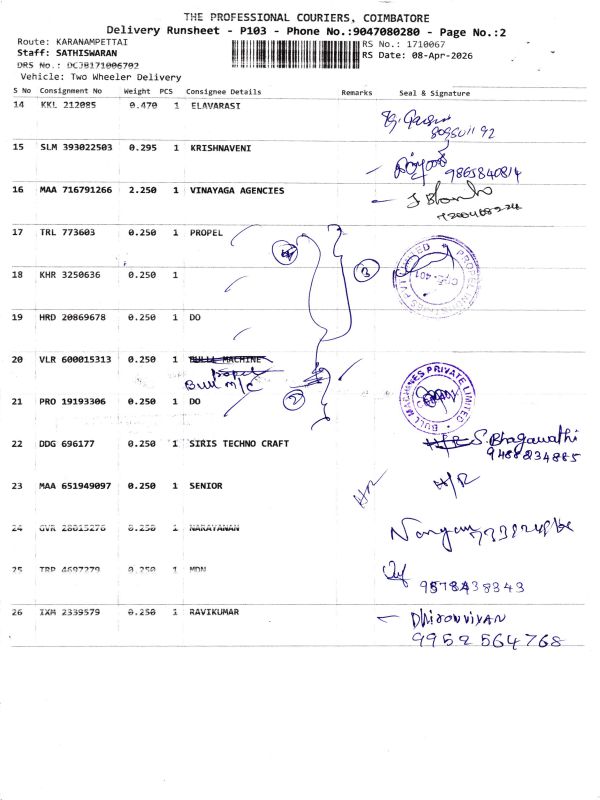 THE PROFESSIONAL COURIERS, COIMBATORE
Delivery Runsheet - P103 - Phone No.:9047080280 - Page No.:2
Route: KARANAMPETTAI
RS No.: 1710067
Staff: SATHISWARAN
RS Date: 08-Apr-2026
DRS No.: DCJB171006702
Vehicle: Two Wheeler Delivery
S No Consignment No Weight PCS Consignee Details Remarks Seal & Signature
14 KKL 212085 0.470 1 ELAVARASI
15 SLM 393022503 0.295 1 KRISHNAVENI
9865840814
16 MAA 716791266 2.250 1 VINAYAGA AGENCIES
17 TRL 773603 0.250 1 PROPEL
4
3
18 KHR 3250636 0.250 1
19 HRD 20869678 0.250 1 DO
20 VLR 600015313 0.250 1 BULL MACHINE
propel
Bull m/c
BULL MACHINES PRIVATE LIMITED
21 PRO 19193306 0.250 1 DO
2
22 DDG 696177 0.250 1 SIRIS TECHNO CRAFT
H/R S. Bhagawathi
9488234885
23 MAA 651949097 0.250 1 SENIOR
H/R
24 GVR 28015276 0.250 1 NARAYANAN
25 TRP 4697279 0.250 1 MDN
9578438343
26 IXM 2339579 0.250 1 RAVIKUMAR
9952564768